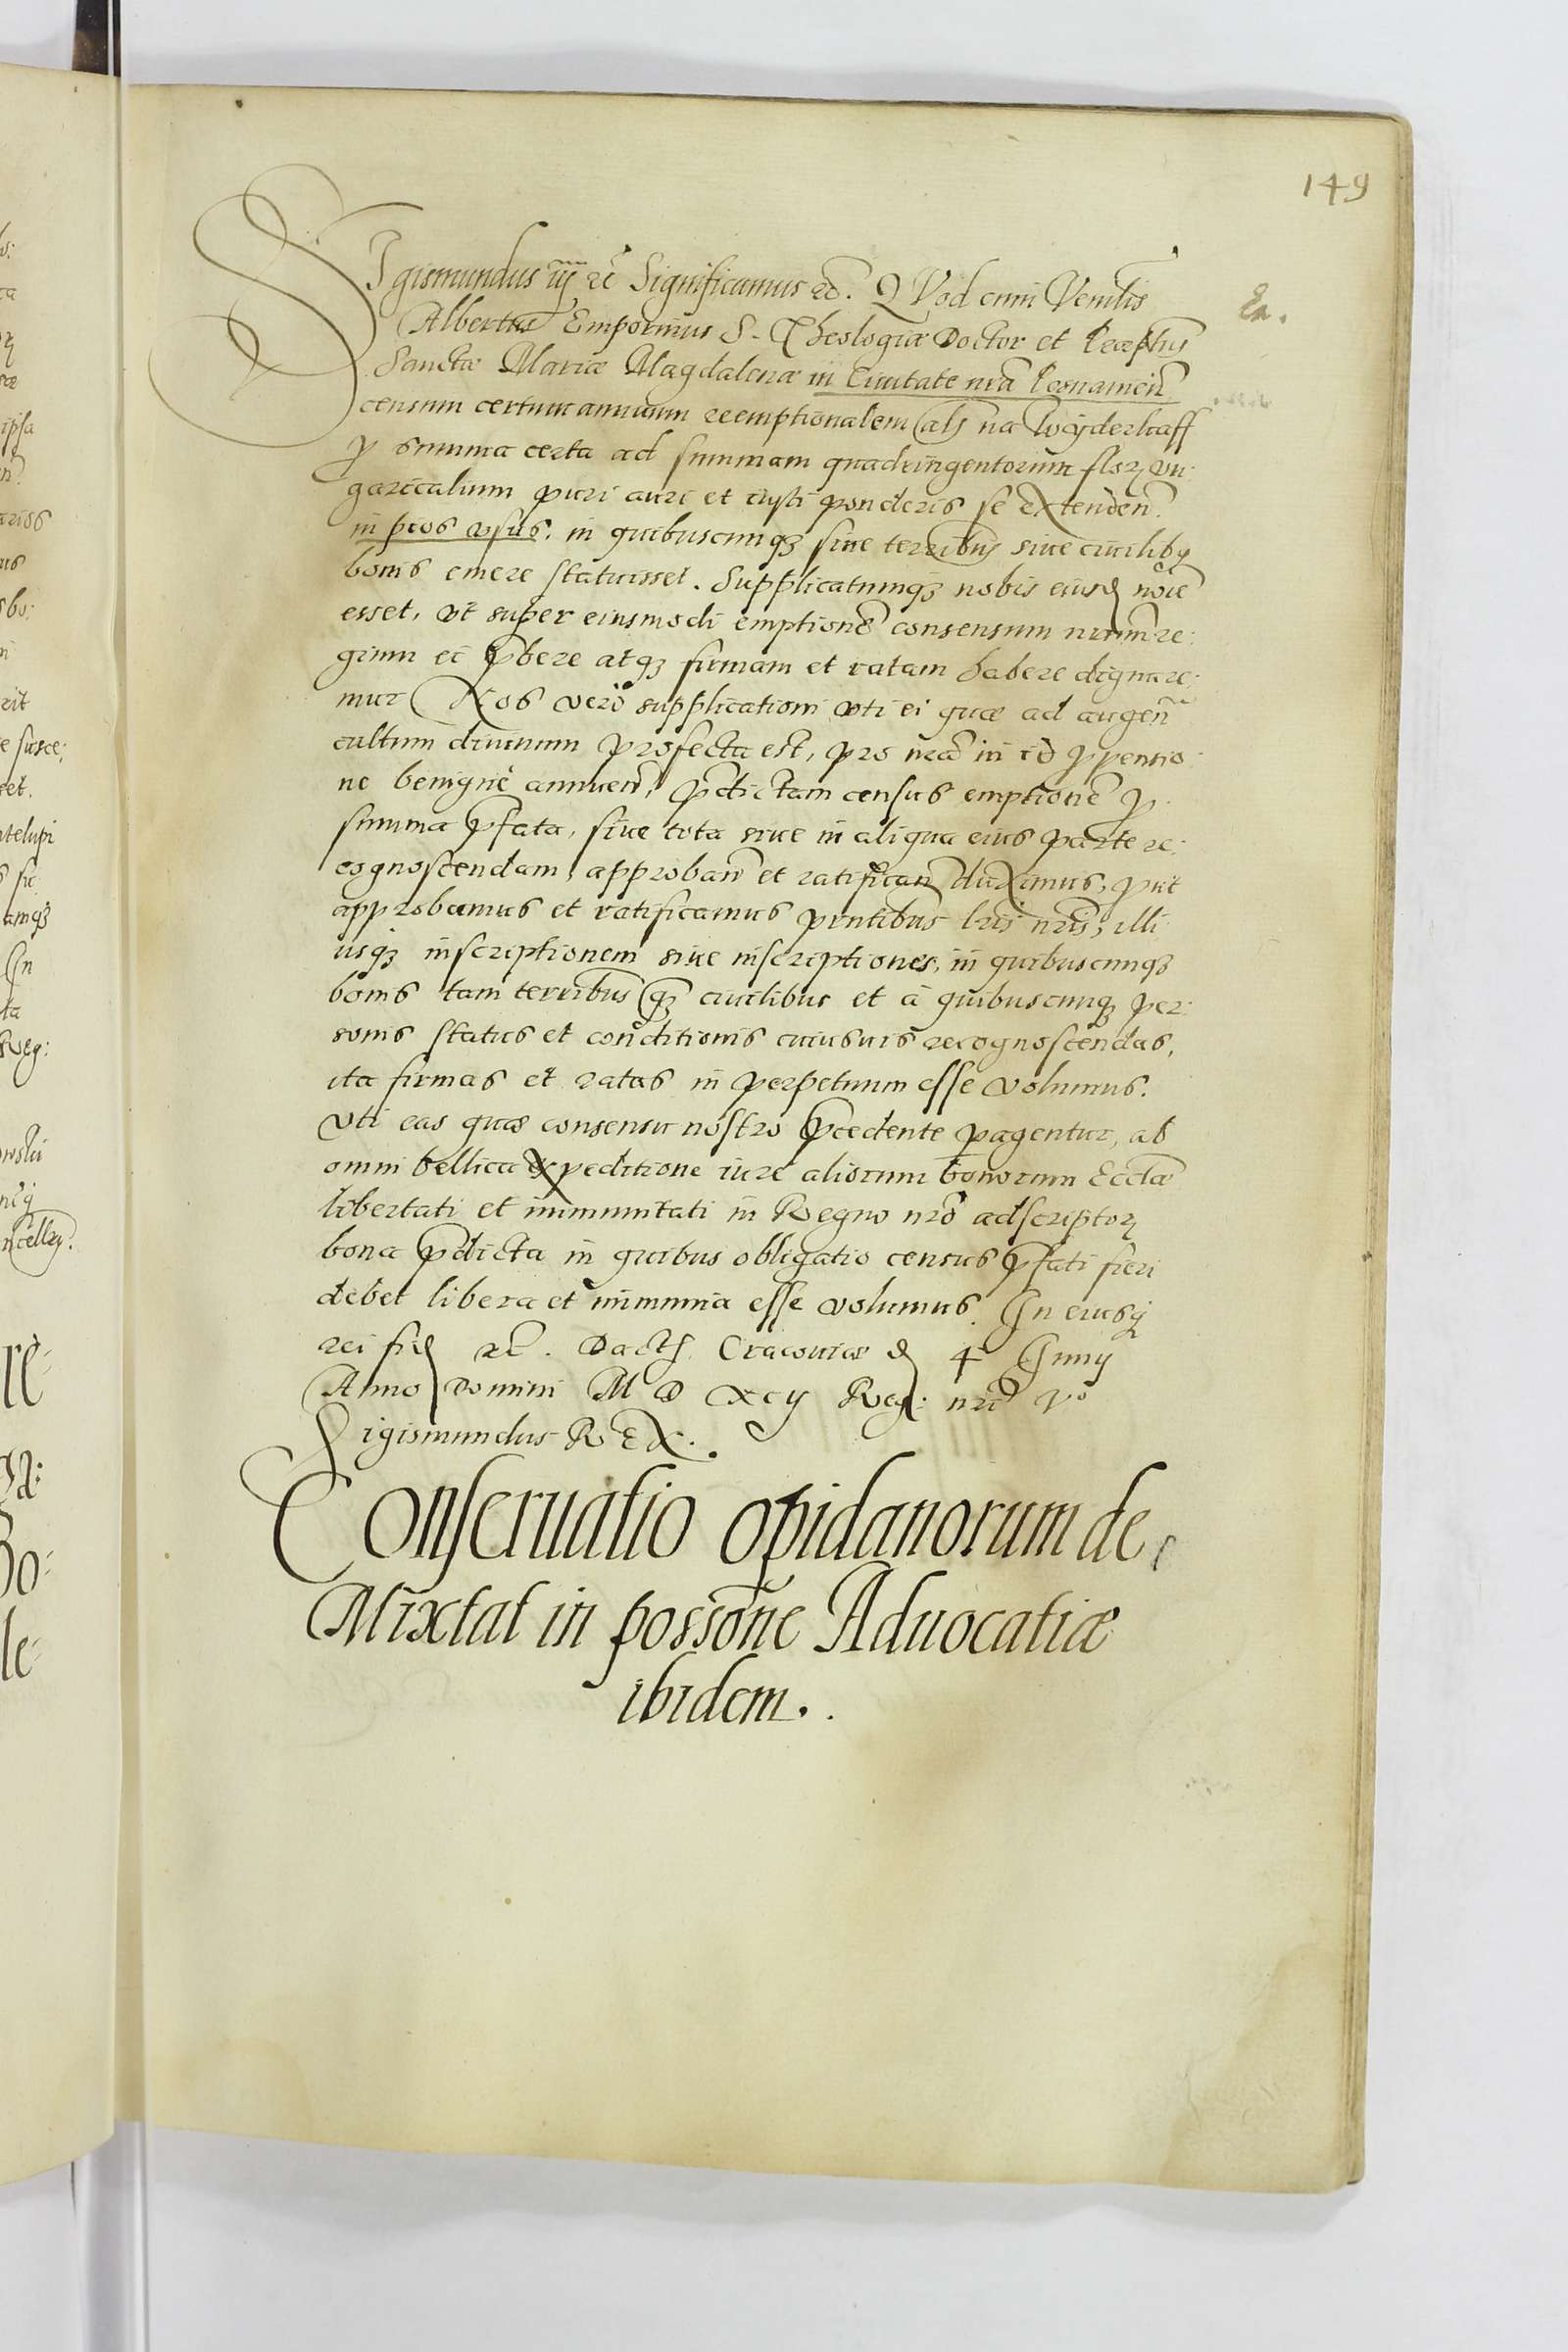 149
Sigismundus iij etc̃ Significamus etc̃. QVod cum Venerlis
Ea.
Albertus Emporinus S. Theologiæ Doctor et Præptus
Sanctæ Mariæ Magdalenæ in Ciuitate nrã Posnanien̄
censum certum annuum reemptionalem als na Wyderkaff
ꝓ summa certa ad summam quadringentorum florꝝ vn:
garicalium puri auri et iusti ponderis se extenden̄
in pios vsus, in quibuscunqꝫ siue terribus siue ciuilibꝫ
bonis emere statuisset. Supplicatumqꝫ nobis eiusd noı̃e
esset, vt super eiusmodi emptione consensum nrũm re:
gium ei p̱bere atqꝫ firmam et ratam habere dignare:
mur Nos vero supplicationi vti ei quæ ad augen̄
cultum diuinum profecta est, pro nrã in id ꝓpensio:
ne benigne annuen̄, p̱dictam census emptionē ꝓ
summa p̱fata, siue tota siue in aliqua eius parte re:
cognoscendam, approban̄ et ratifican̄ duximus, put
approbamus et ratificamus pnntibus lris nris, illi
usqꝫ inscriptionem siue inscriptiones, in quibuscunqꝫ
bonis tam terribus qꝫ ciuilibus et à quibuscunqꝫ per:
sonis status et conditionis cuiusuis recognoscendas,
ita firmas et ratas in perpetuum esse volumus.
Vti eas quæ consensu nostro p̱cedente pagentur, ab
omni bellica expeditione iure aliorum bonorum Ecclæ
libertati et immunitati in Regno nrõ adscriptorꝝ
bona p̱dicta in quibus obligatio census p̱fati fieri
debet libera et immunia esse volumus. In cuiusqꝫ
rei fid etc̃. Datꝭ Cracouiæ d 4 Iunij
Anno Domini M D XCij Reg: nrĩ Vº
Sigismundus REX.
Conseruatio opidanorum de
Mixtat in possõne Aduocatiæ
ibidem.